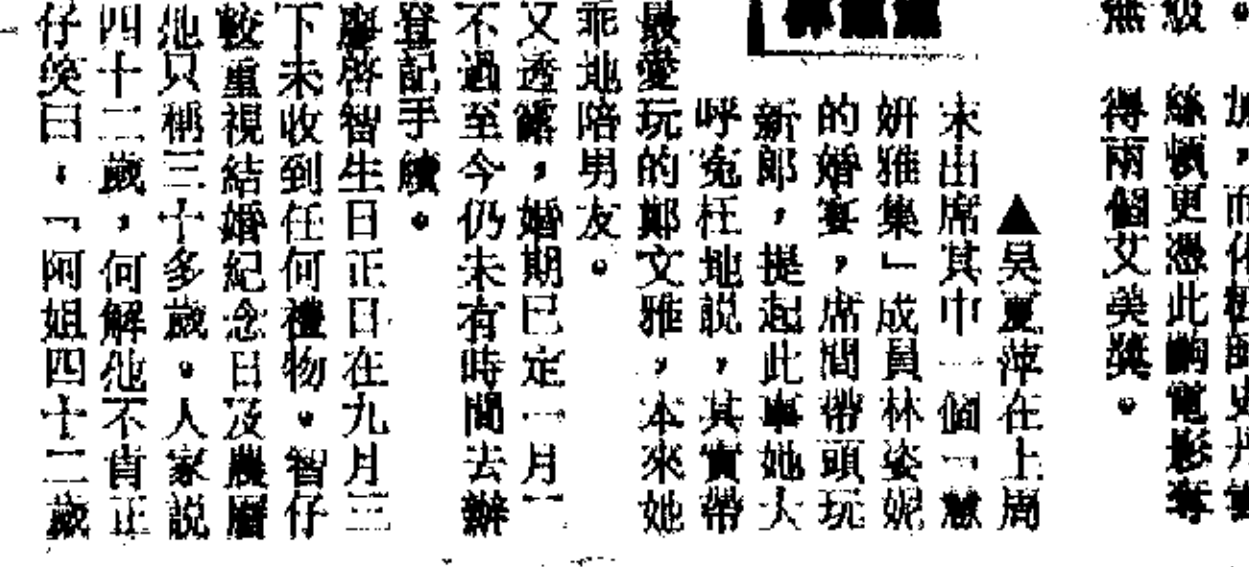 級。加，而佐
絲頓更憑此齣電影奪
得兩個艾美獎。
▲吳夏萍在上周
末出席其中一個「慧
妍雅集」成員林姿妮
的婚宴，席間帶頭玩
新郎，提起此事她大
呼冤枉地説，其實帶
最愛玩的鄭文雅，本來她
乖地陪男友。
又透露，婚期已定一月一
不過至今仍未有時間去辦
登記手續。
廖啓智生日正日在九月三
下未收到任何禮物。智仔
較重視結婚紀念日及農曆
他只稱三十多歲。人家説
四十二歲，何解他不肯正
仔笑曰，「阿姐四十二歲